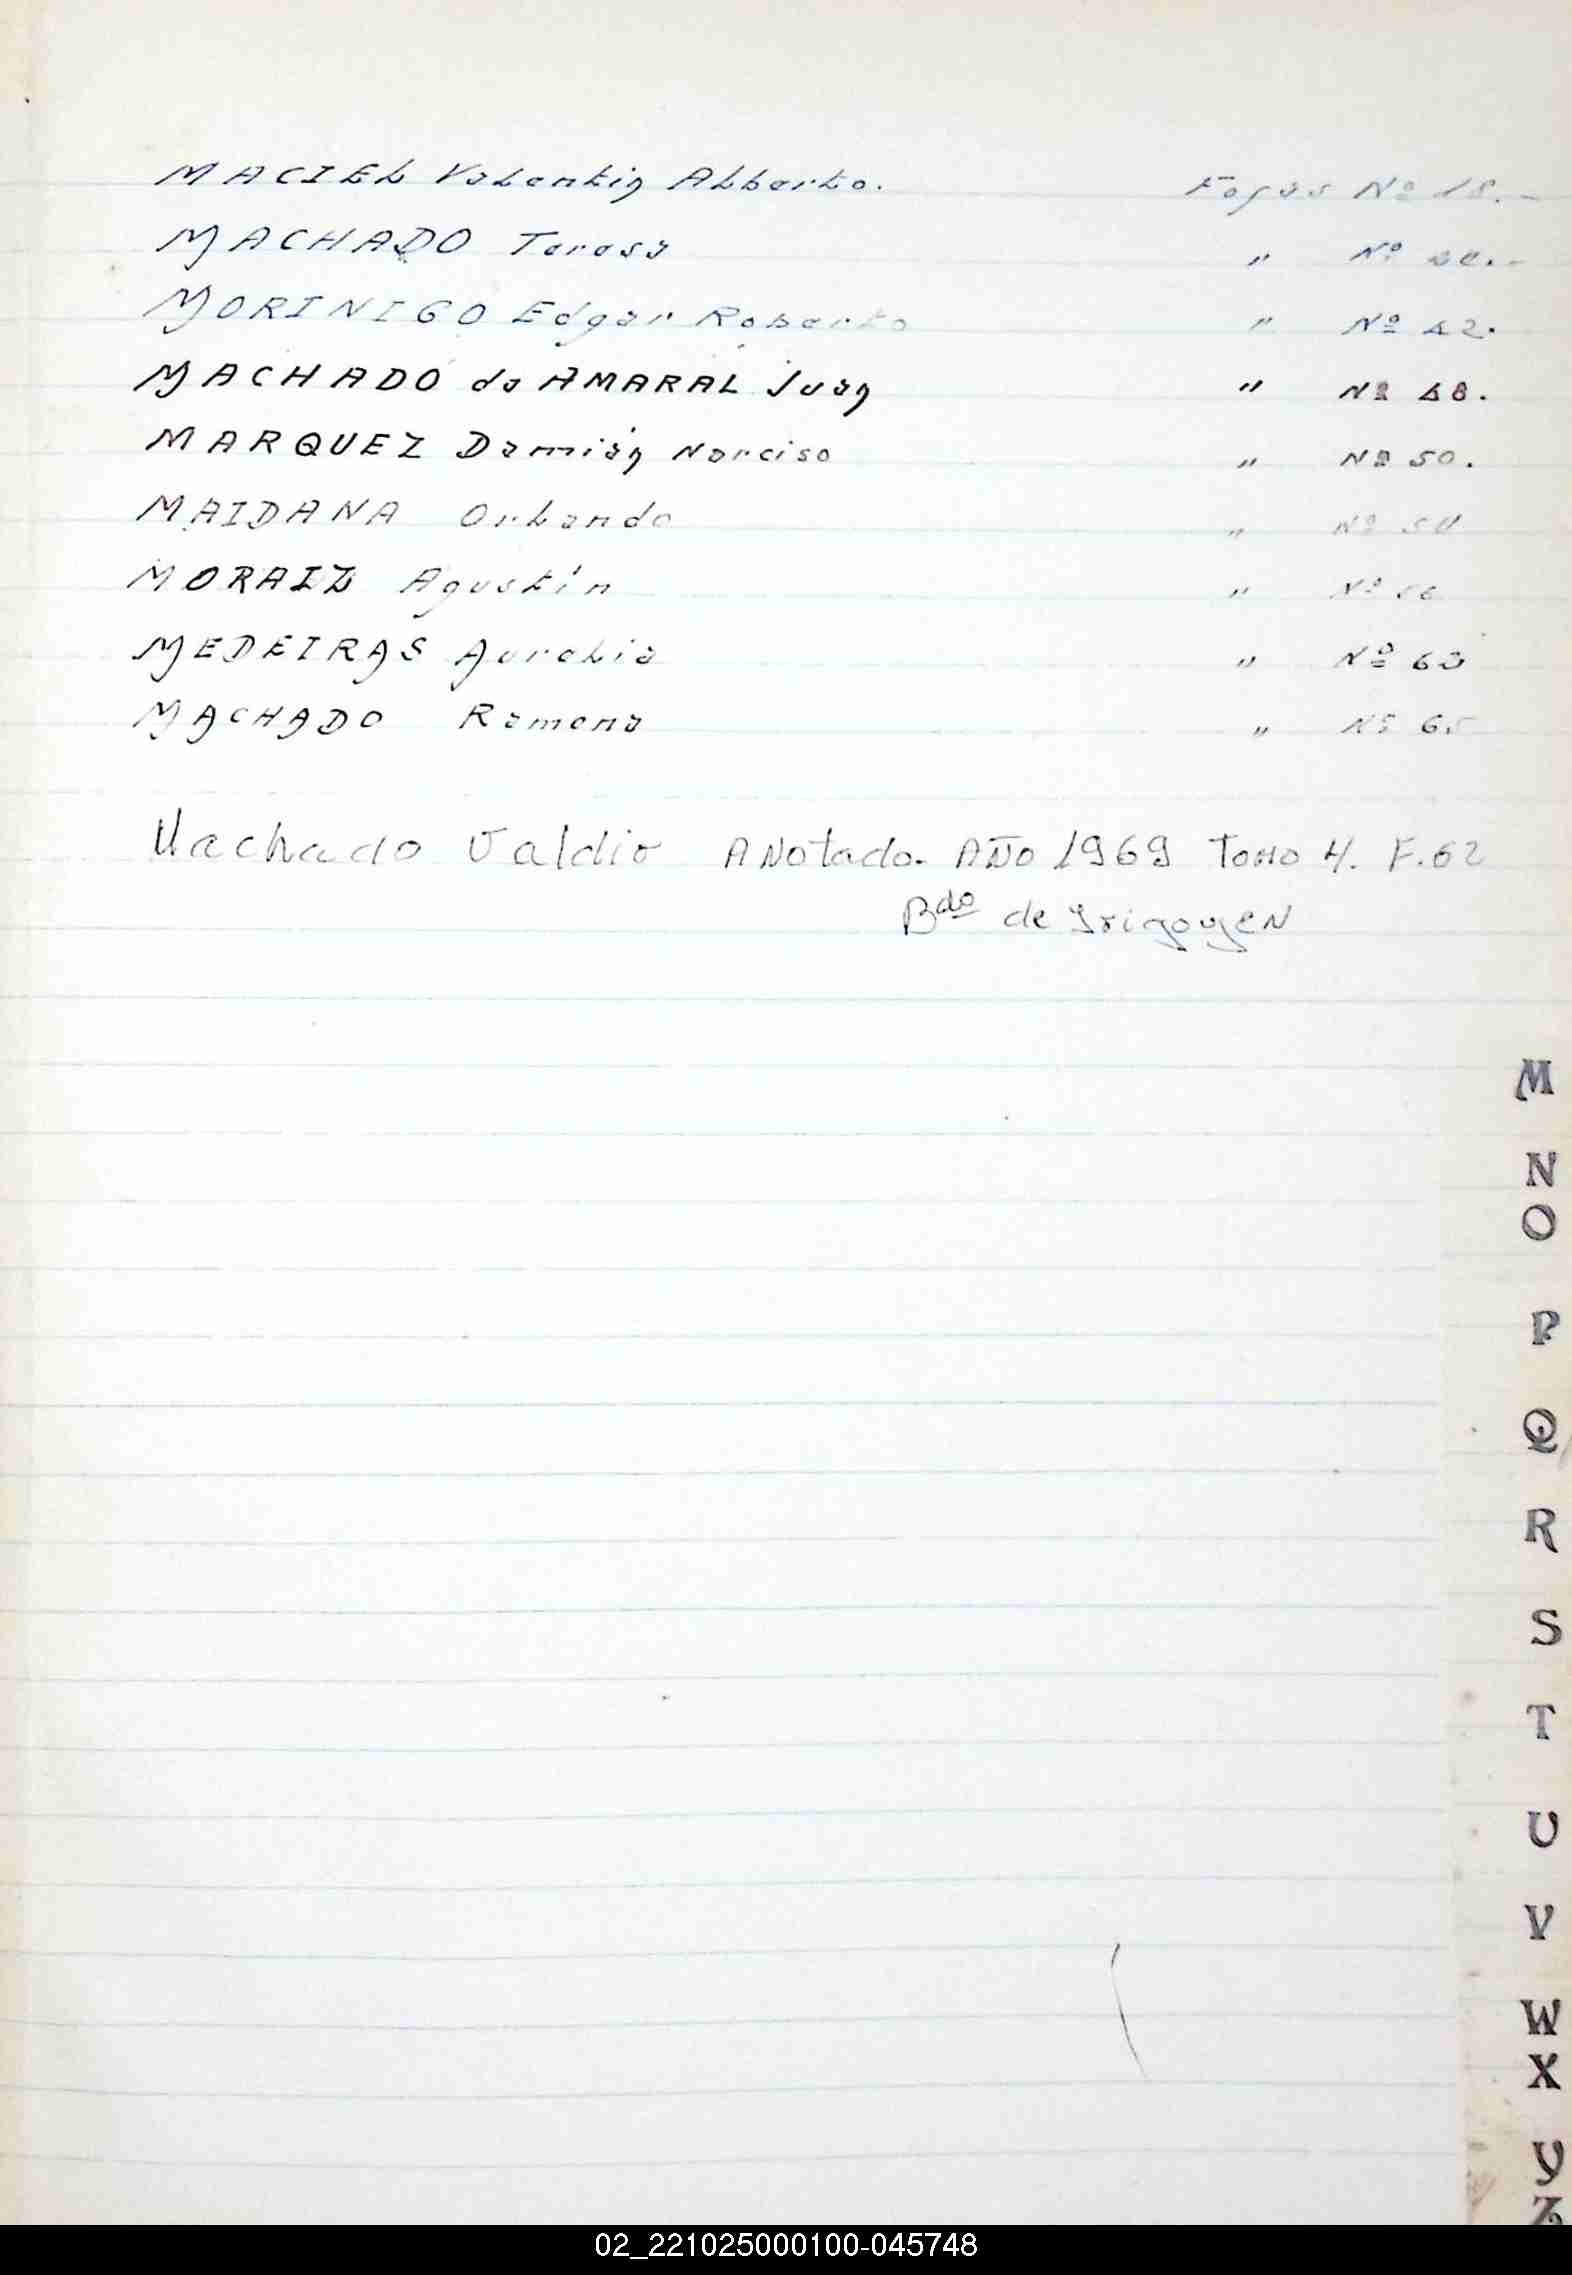 MACIEL Valentin Alberto. Fojas Nº 18.-
MACHADO Teresa " Nº
MORINIGO Edgar Roberto " Nº 42.
MACHADO da AMARAL Juan " Nº 48.
MARQUEZ Damián Narciso " Nº 50.
MAIDANA Orlando " Nº 54
MORAIZ Agustín " Nº
MEDEIRAS Aurelia " Nº 63
MACHADO Ramona " Nº 65
Machado Valdir Anotado. Año 1969 Tomo 4. F.62
Bdo de Irigoyen
M
N
O
P
Q
R
S
T
U
V
W
X
Y
Z
02_221025000100-045748